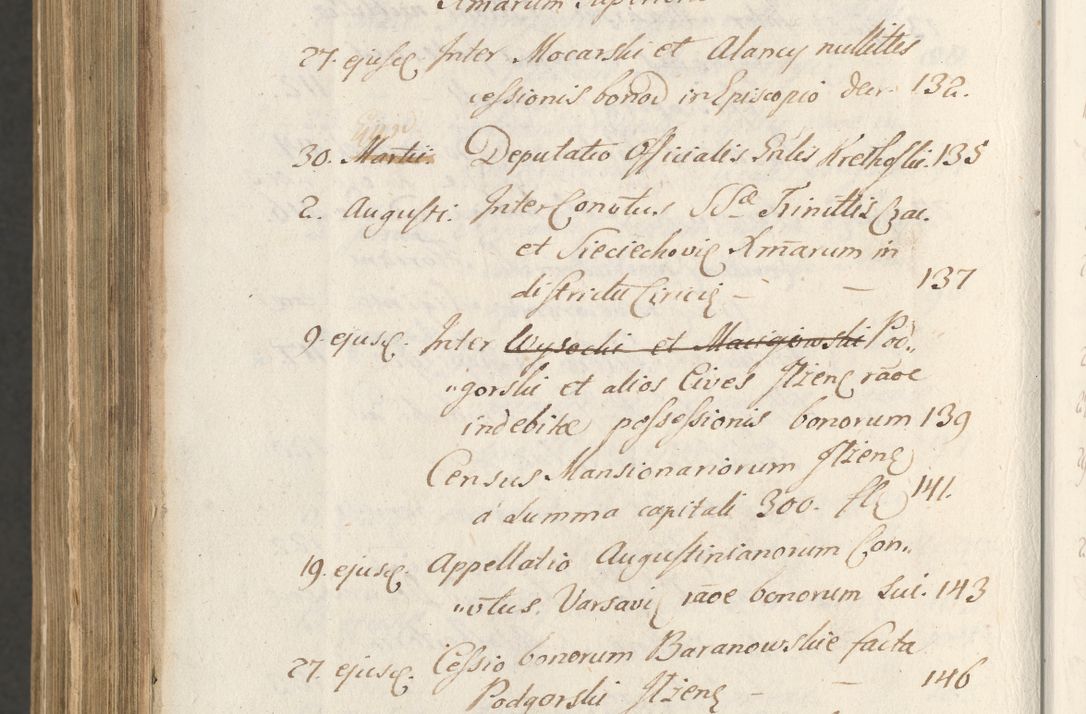 27. ejusq. Inter Mocarski et Alancy nullittis
cessionis bonoq in Episcopio decr. 132.
Ejusd.
30. Martii. Deputatio Officialis Pntis Krethoski. 135
2. Augusti. Inter Convtus SSae Trinittis Crac.
et Sieciechoviq Xmarum in
districtu Circiq - - 137
9. ejusq. Inter Wysocki et Maciejowski Pod,,
,,gorski et alios Cives Jlżenq raoe
indebitae possessionis bonorum 139
Census Mansionariorum Jlżenq
a summa capitali 300. flq 141.
19. ejusq. Appellatio Augustinianorum Con,,
,,vtus. Varsaviq raoe bonorum sui. 143
27. ejusq. Cessio bonorum Baranowskie facta
Podgorski Jlżenq - - 146